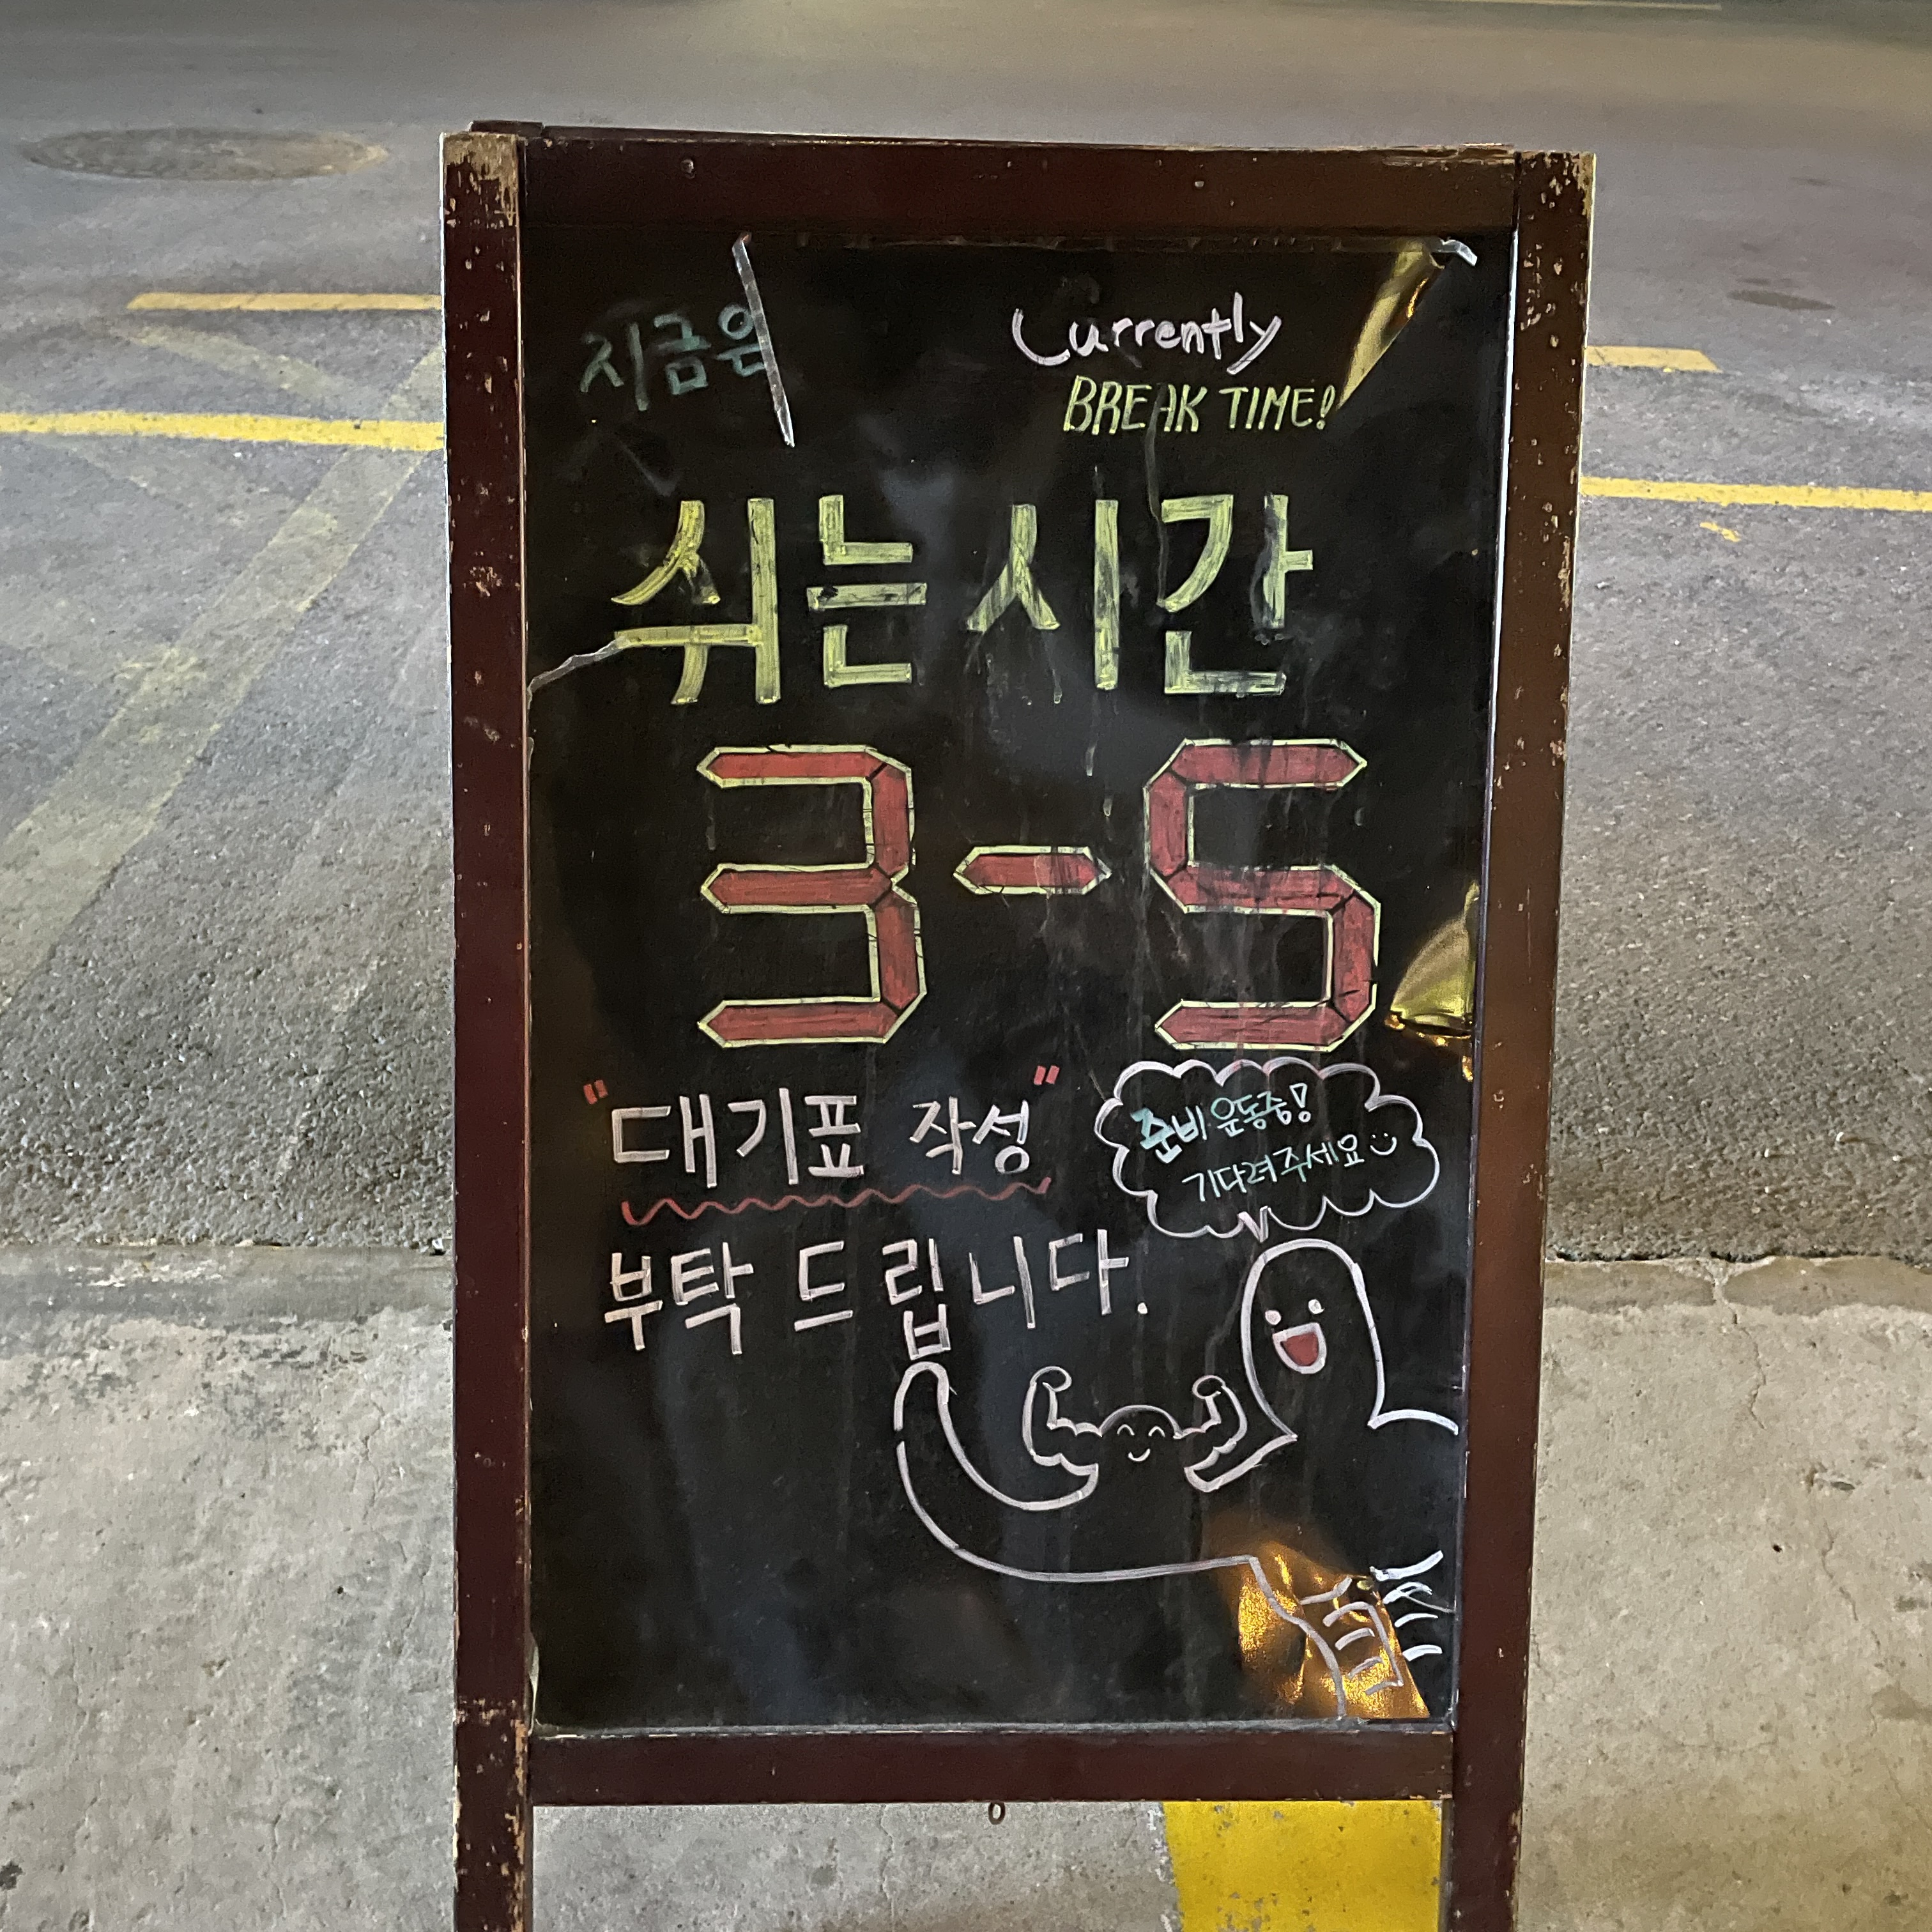 지금은
Currently
BREAK TIME!
쉬는 시간
3-5
"대기표 작성"
부탁 드립니다.
준비 운동중!
기다려주세요